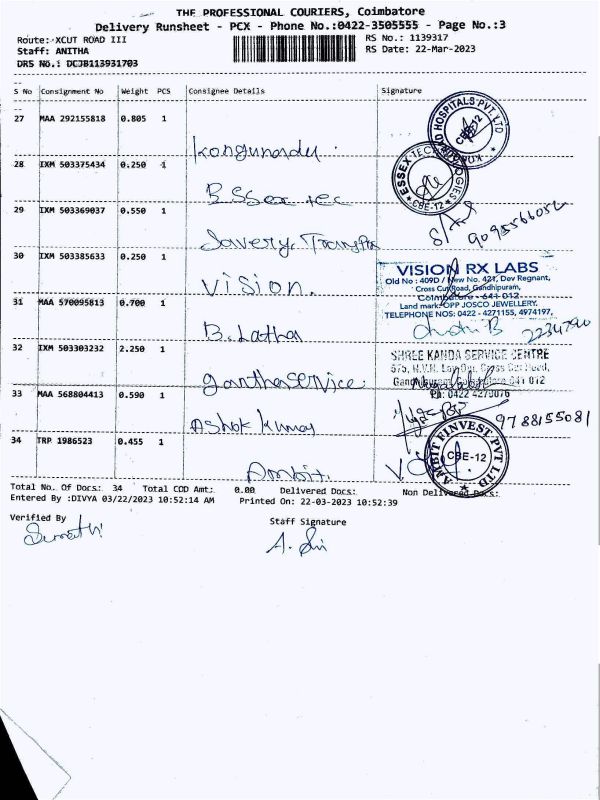 THE PROFESSIONAL COURIERS, Coimbatore
Delivery Runsheet - PCX - Phone No.:0422-3505555 - Page No.:3
Route: XCUT ROAD III
RS No.: 1139317
Staff: ANITHA
RS Date: 22-Mar-2023
DRS No.: DCJB113931703
S No Consignment No Weight PCS Consignee Details Signature
27 MAA 292155818 0.805 1
Kongunadu
HOSPITALS PVT. LTD
CBE-12
28 IXM 503375434 0.250 1
Essex tec
ESSEX TECHNOLOGIES
CBE-12
29 IXM 503369037 0.550 1
9095566052
30 IXM 503385633 0.250 1
Vision.
VISION RX LABS
Old No : 409D / New No. 421, Dev Regnant,
Cross Cut Road, Gandhipuram,
Coimbatore - 641 012
Land mark: OPP JOSCO JEWELLERY.
TELEPHONE NOS: 0422 - 4271155, 4974197,
2234790
31 MAA 570095813 0.700 1
B. Latha
32 IXM 503303232 2.250 1
service
SHREE KANDA SERVICE CENTRE
Gandhipuram, Coimbatore 641 012
Ph: 0422 4270076
33 MAA 568804413 0.590 1
Ashok Kumar
9788155081
34 TRP 1986523 0.455 1
Ambit.
AMBIT FINVEST PVT LTD
CBE-12
Total No. Of Docs: 34 Total COD Amt: 0.00 Delivered Docs: Non Delivered Docs:
Entered By :DIVYA 03/22/2023 10:52:14 AM Printed On: 22-03-2023 10:52:39
Verified By
Staff Signature